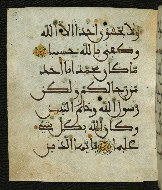 ولا يخشون احدا الا الله
وكفى بالله حسيبا
ما كان محمد ابا احد
من رجالكم ولكن
رسول الله وخاتم النبين
وكان الله بكل شى
عليما يايها الذين